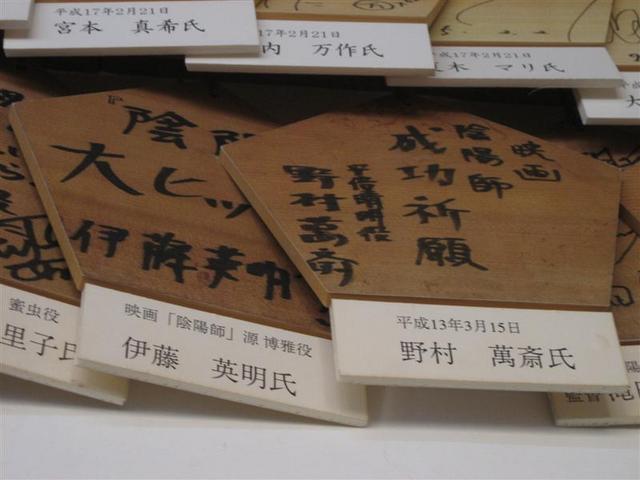 平成17年2月21日
宮本 真希氏
17年2月21日
内 万作氏
木 マリ氏
平成
陰
大ヒッ
伊藤英明
映画
陰陽師
成功祈願
安倍晴明役
野村萬斎
蜜虫役
里子氏
映画「陰陽師」源 博雅役
伊藤 英明氏
平成13年3月15日
野村 萬斎氏
監督